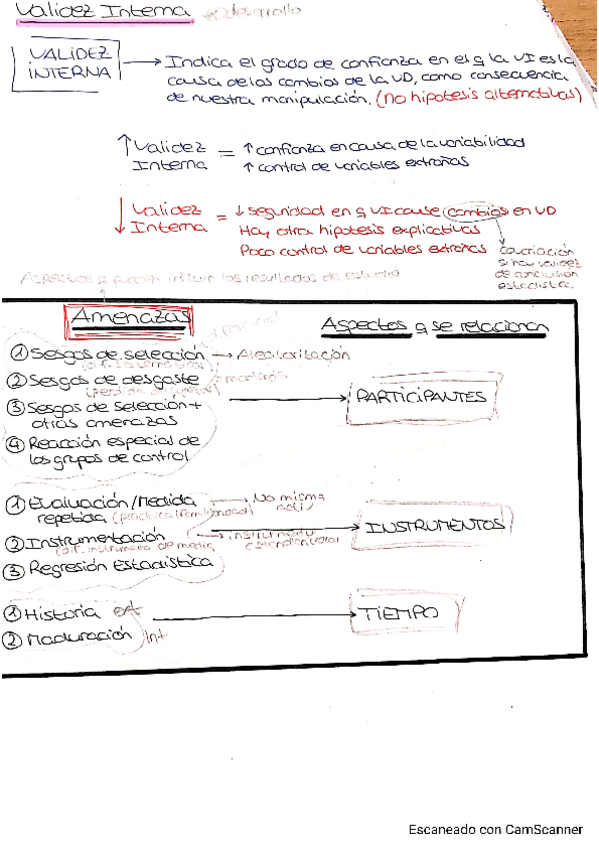 Validez Interna desarrollo
VALIDEZ INTERNA → Indica el grado de confianza en el q la VI es la
causa de los cambios de la VD, como consecuencia
de nuestra manipulación. (No hipotesis alternativas)
↑ Validez Interna = ↑ confianza en causa de la variabilidad
↑ control de variables extrañas
↓ Validez Interna = ↓ seguridad en q VI cause cambios en VD
Hay otra hipotesis explicativas
Poco control de variables extrañas
covariación
si hay validez
de conclusion
estadistica
Aspectos q pueden influir los resultados de estudio
Amenazas
Aspectos q se relacionan
① Sesgos de selección → Aleatorización
② Sesgos de desgaste = mortalidad
③ Sesgos de selección +
otras amenazas
④ Reacción especial de
los grupos de control
PARTICIPANTES
① Evaluación/Medida → No misma
repetida (practica/familiaridad)
② Instrumentación → instrumento
(dif. instrumento de medida)
③ Regresión Estadística
INSTRUMENTOS
① Historia ext
② Maduración Int
TIEMPO
Escaneado con CamScanner